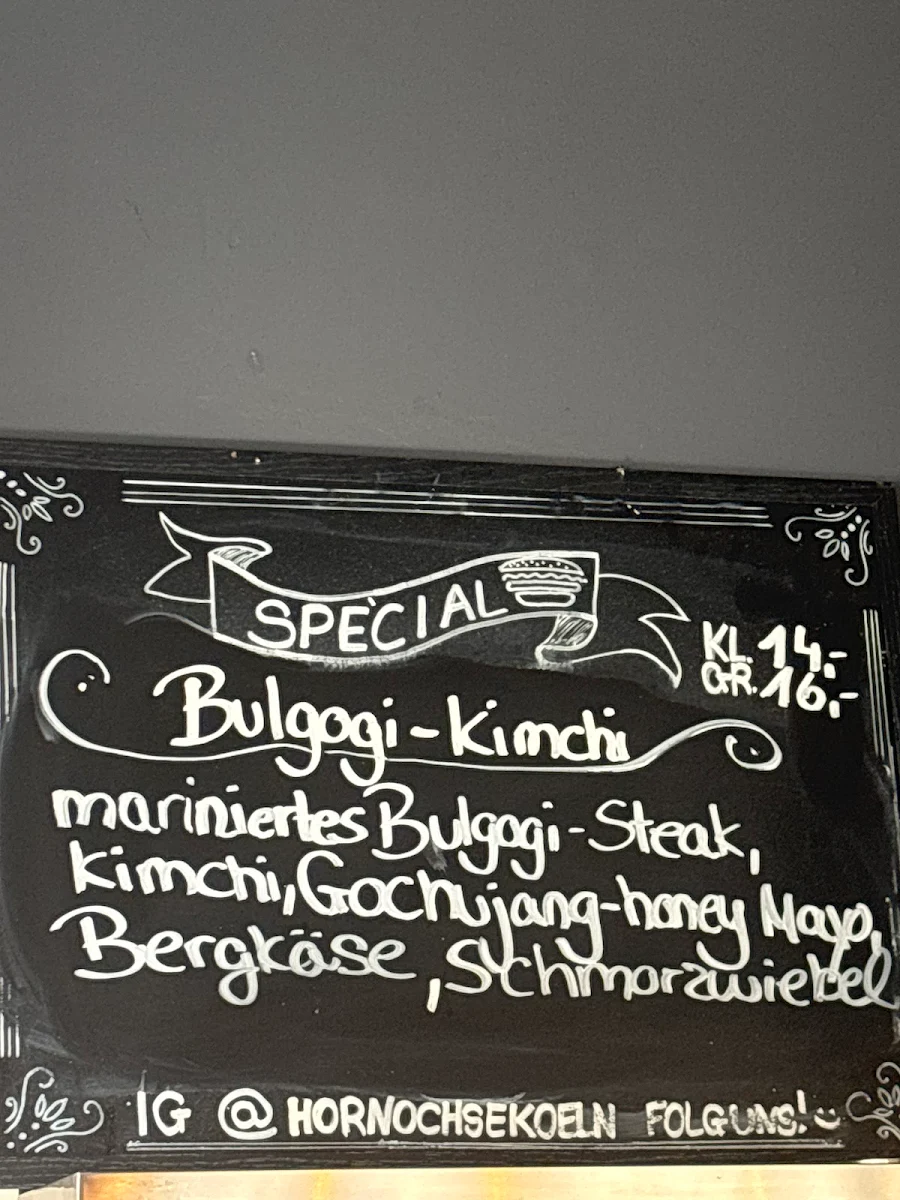 SPECIAL
KL. 14,-
GR. 16,-
Bulgogi-Kimchi
mariniertes Bulgogi-Steak,
Kimchi, Gochujang-honey Mayo,
Bergkäse, Schmorzwiebel
IG @HORNOCHSEKOELN FOLG UNS!